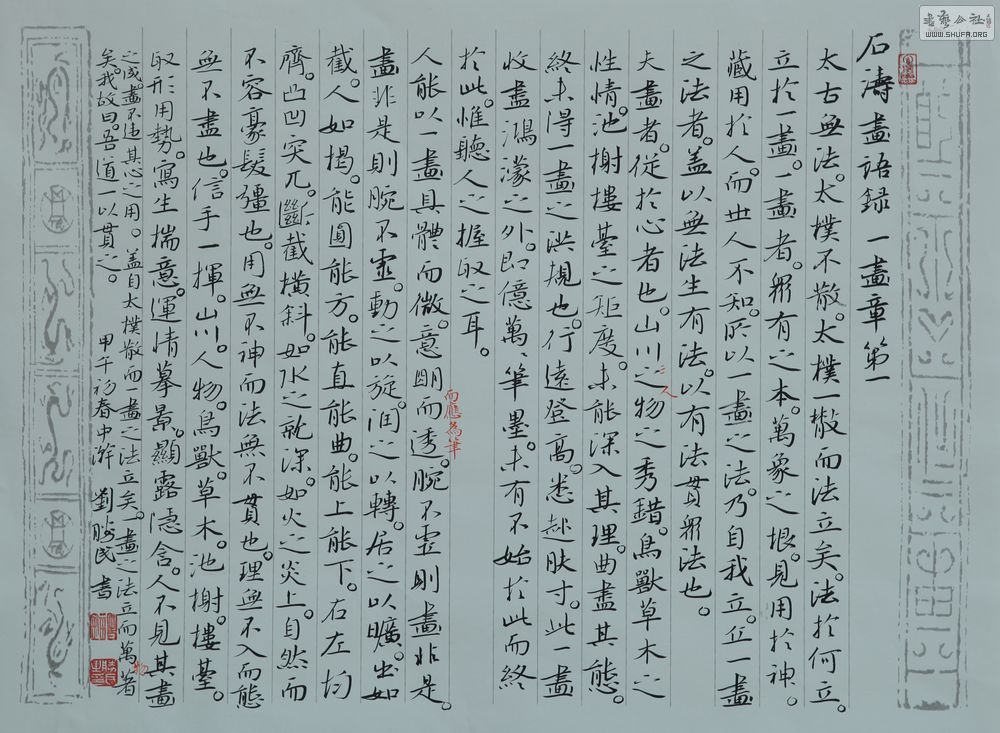 石濤畫語録 一畫章第一
太古無法。太樸不散。太樸一散而法立矣。法於何立。
立於一畫。一畫者。眾有之本。萬象之根。見用於神。
藏用於人。而世人不知。所以一畫之法。乃自我立。立一畫
之法者。蓋以無法生有法。以有法貫眾法也。
夫畫者。從於心者也。山川之物之秀錯。鳥獸草木之
人
性情。池榭樓臺之矩度。未能深入其理。曲盡其態。
終未得一畫之洪規也。行遠登高。悉起膚寸。此一畫
收盡鴻濛之外。即億萬萬筆墨。未有不始於此而終
於此。惟聽人之握取之耳。
人能以一畫具體而微。意明而透。腕不虛則畫非是。
而應為筆
畫非是則腕不靈。動之以旋。潤之以轉。居之以曠。出如
截。人如揭。能圓能方。能直能曲。能上能下。右左均
齊。凸凹突兀。截橫斜。如水之就深。如火之炎上。自然而
不容毫髮彊也。用無不神而法無不貫也。理無不入而態
無不盡也。信手一揮。山川。人物。鳥獸。草木。池榭。樓臺。
取形用勢。寫生揣意。運情摹景。顯露隱含。人不見其畫
之成。畫不違其心之用。蓋自太樸散而一畫之法立矣。一畫之法立而萬著
物
矣。我故曰。吾道一以貫之。 甲午初春中澣 劉勝民書
書藝公社
WWW.SHUFA.ORG